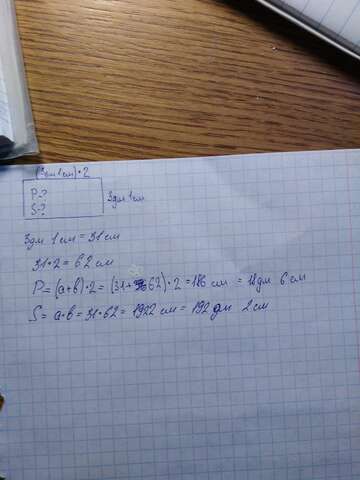 (3дм 1 см) • 2
P-?
S-?
3дм 1см
3дм 1см = 31 см
31•2 = 62 см
P = (a+b)•2 = (31+62)•2 = 186 см = 18дм 6 см
S = a•b = 31•62 = 1922 см = 192 дм 2 см